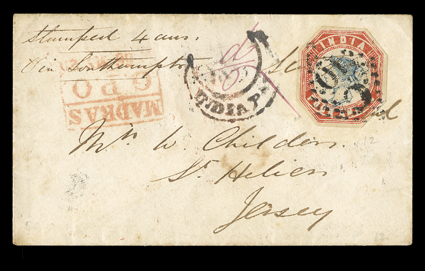 Stamped 4 ans.
Via Southampton
INDIA
MADRAS
G.P.O
INDIA P
Mrs W. Childers
St Heliers
Jersey